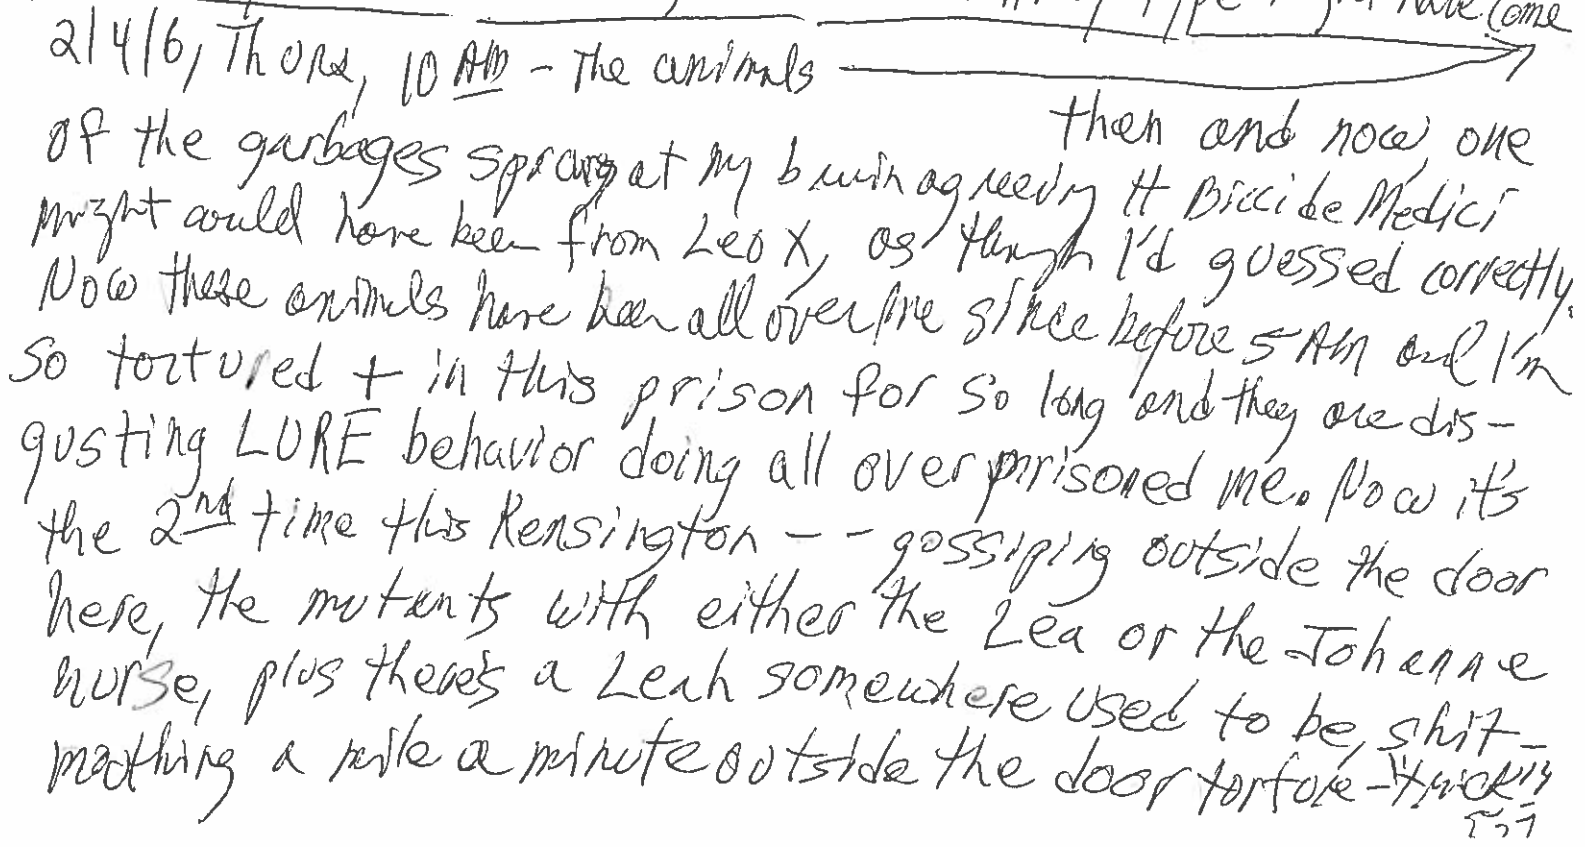 have come
2/4/16, Thurs, 10 AM - The animals
then and now, one
of the garbages sprang at my brain agreeing tt Bicci de Medici
might could have been from Leo X, as though I'd guessed correctly.
Now these animals have been all over me since before 5 AM and I'm
so tortured + in this prison for so long and they are dis-
gusting LURE behavior doing all over prisoned me. Now it's
the 2nd time this Kensington - - gossiping outside the door
here, the mutants with either the Lea or the Johanne
nurse, plus there's a Leah somewhere used to be, shit-
mouthing a mile a minute outside the door torture-